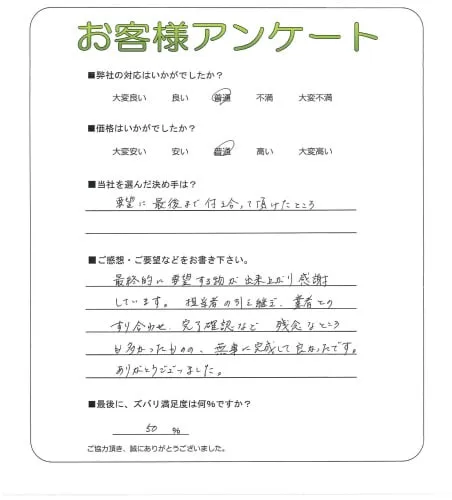 お客様アンケート
■弊社の対応はいかがでしたか？
大変良い 良い 普通 不満 大変不満
■価格はいかがでしたか？
大変安い 安い 普通 高い 大変高い
■当社を選んだ決め手は？
要望に最後まで付き合って頂けたところ
■ご感想・ご要望などをお書き下さい。
最終的に要望する物が出来上がり感謝
しています。担当者の引き継ぎ、業者との
すり合わせ、完了確認など 残念なところ
も多かったものの、無事に完成して良かったです。
ありがとうございました。
■最後に、ズバリ満足度は何％ですか？
50 ％
ご協力頂き、誠にありがとうございました。